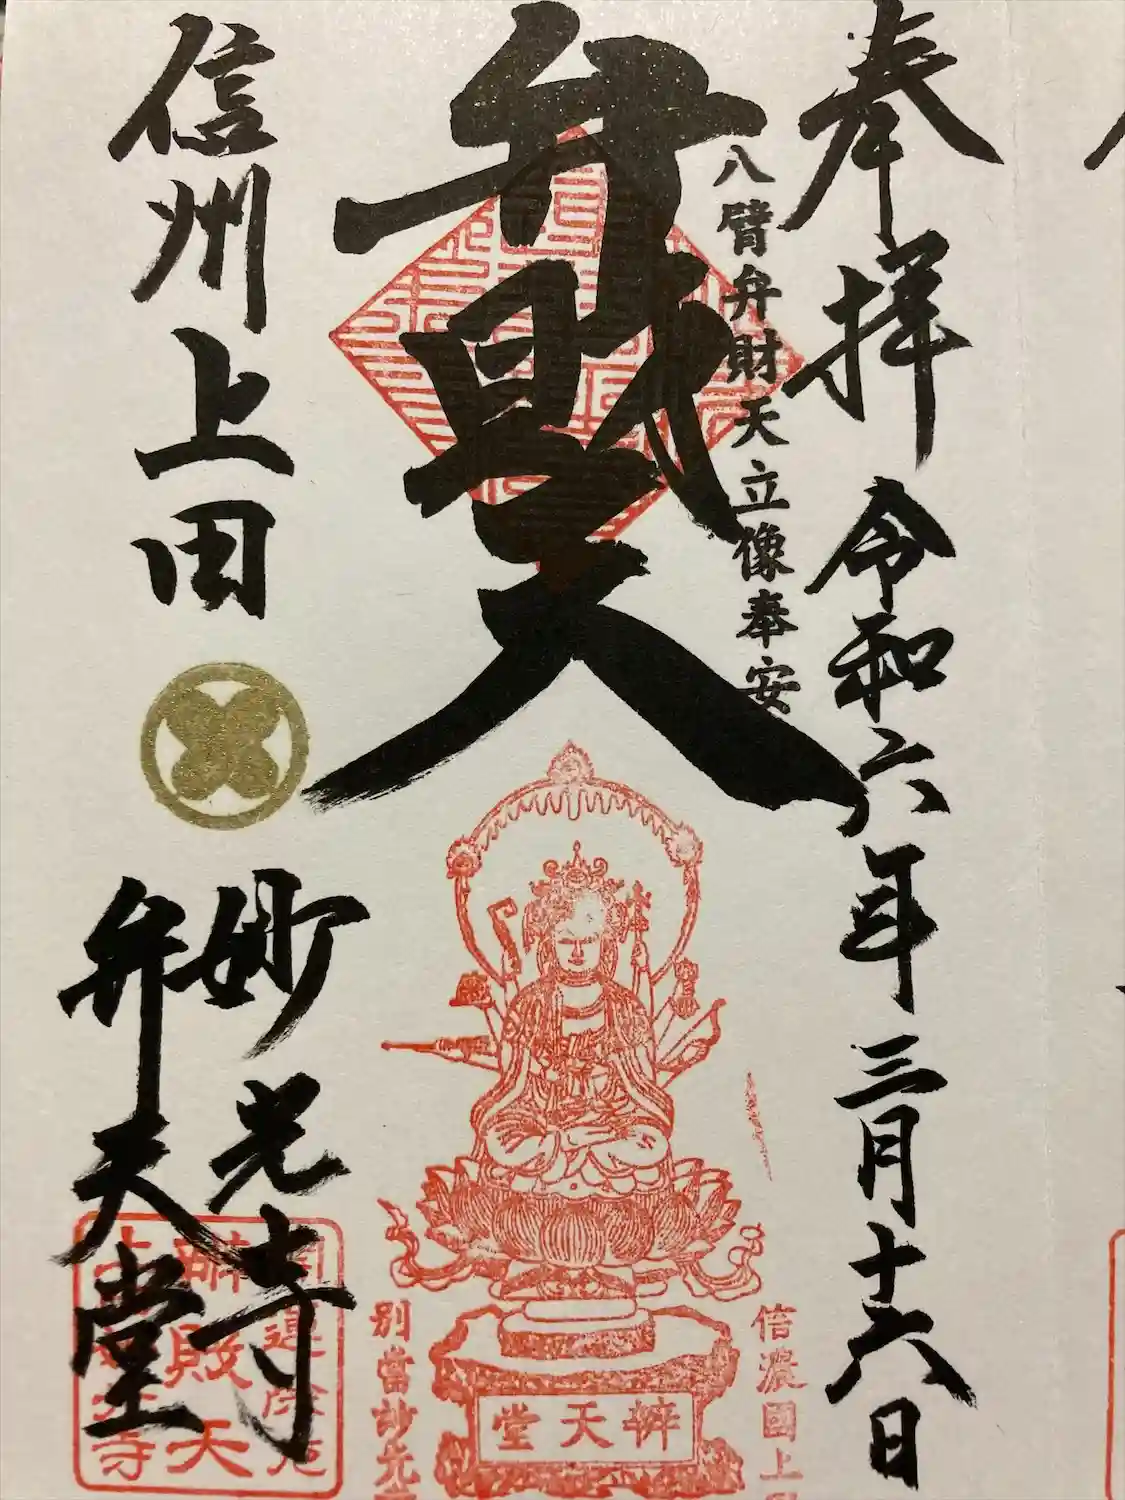 奉拝 令和六年三月十六日
八臂弁財天立像奉安
弁財天
信州上田
妙光寺
弁天堂
信濃國上
辨天堂
別當妙光
辨財天